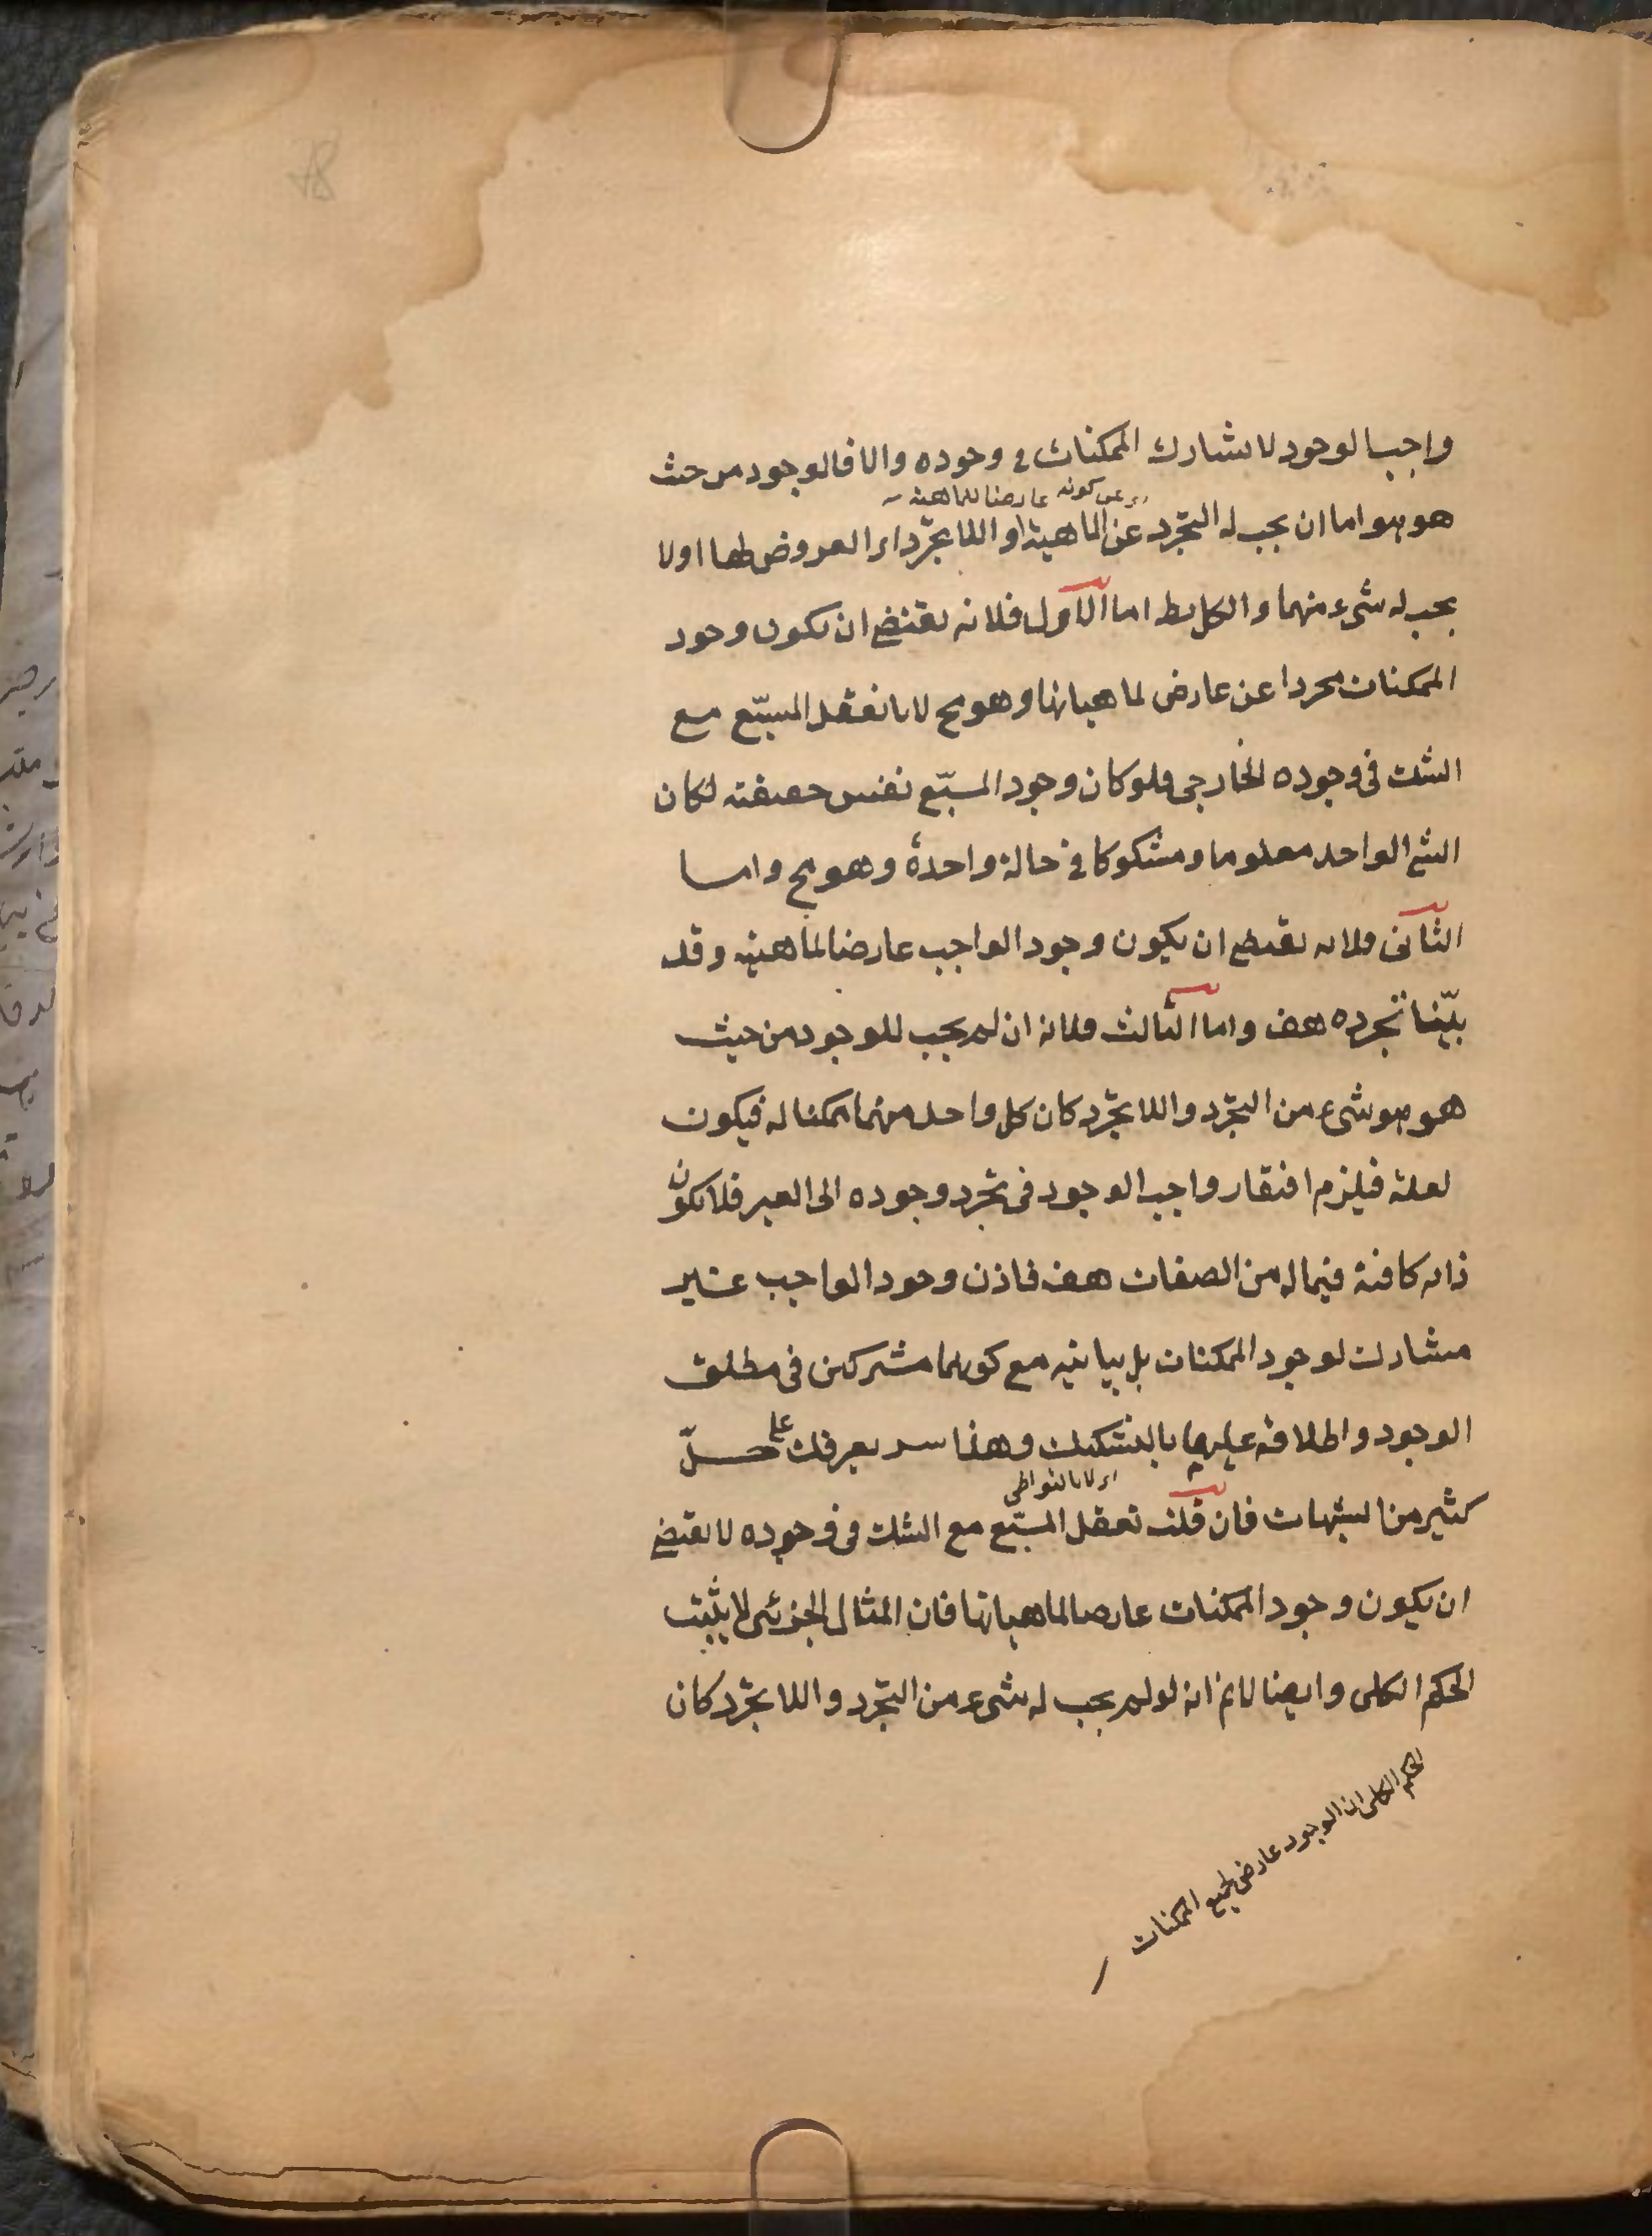 واجب الوجود لا يشارك الممكنات في وجوده والا فالوجود من حيث
اي عن كونه عارضا للماهية
هو هو اما ان يجب له التجرّد عن الماهية او اللاتجرّد اي العروض لها او لا
يجب له شيء منهما والكل بط اما الاول فلانه يقتضي ان يكون وجود
الممكنات مجردا عن عارض لماهياتها وهو مح لانا نعقل المسبّع مع
الشك في وجوده الخارجي فلو كان وجود المسبّع نفس حقيقته لكان
الشي الواحد معلوما ومشكوكا في حالة واحدة وهو مح واما
الثاني فلانه يقتضي ان يكون وجود الواجب عارضا لماهيته وقد
بيّنا تجرده هف واما الثالث فلانه ان لم يجب للوجود من حيث
هو هو شيء من التجرّد واللاتجرّد كان كل واحد منهما ممكنا له فيكون
لعلة فيلزم افتقار واجب الوجود في تجرد وجوده الى الغير فلا يكون
ذاته كافية فيما له من الصفات هف فاذن وجود الواجب غير
مشارك لوجود الممكنات بل يباينه مع كونهما مشتركين في مطلق
الوجود واطلاقه عليهما بالتشكيك وهذا سر يعرفك على حلّ
اي لا بالتواطي
كثير من الشبهات فان قلت تعقل المسبّع مع الشك في وجوده لا يقتضي
ان يكون وجود الممكنات عارضا لماهياتها فان المثال الجزئي لا يثبت
الحكم الكلي وايضا لانم انه لو لم يجب له شيء من التجرّد واللاتجرّد كان
الحكم الكلي ان الوجود عارض لجميع الممكنات